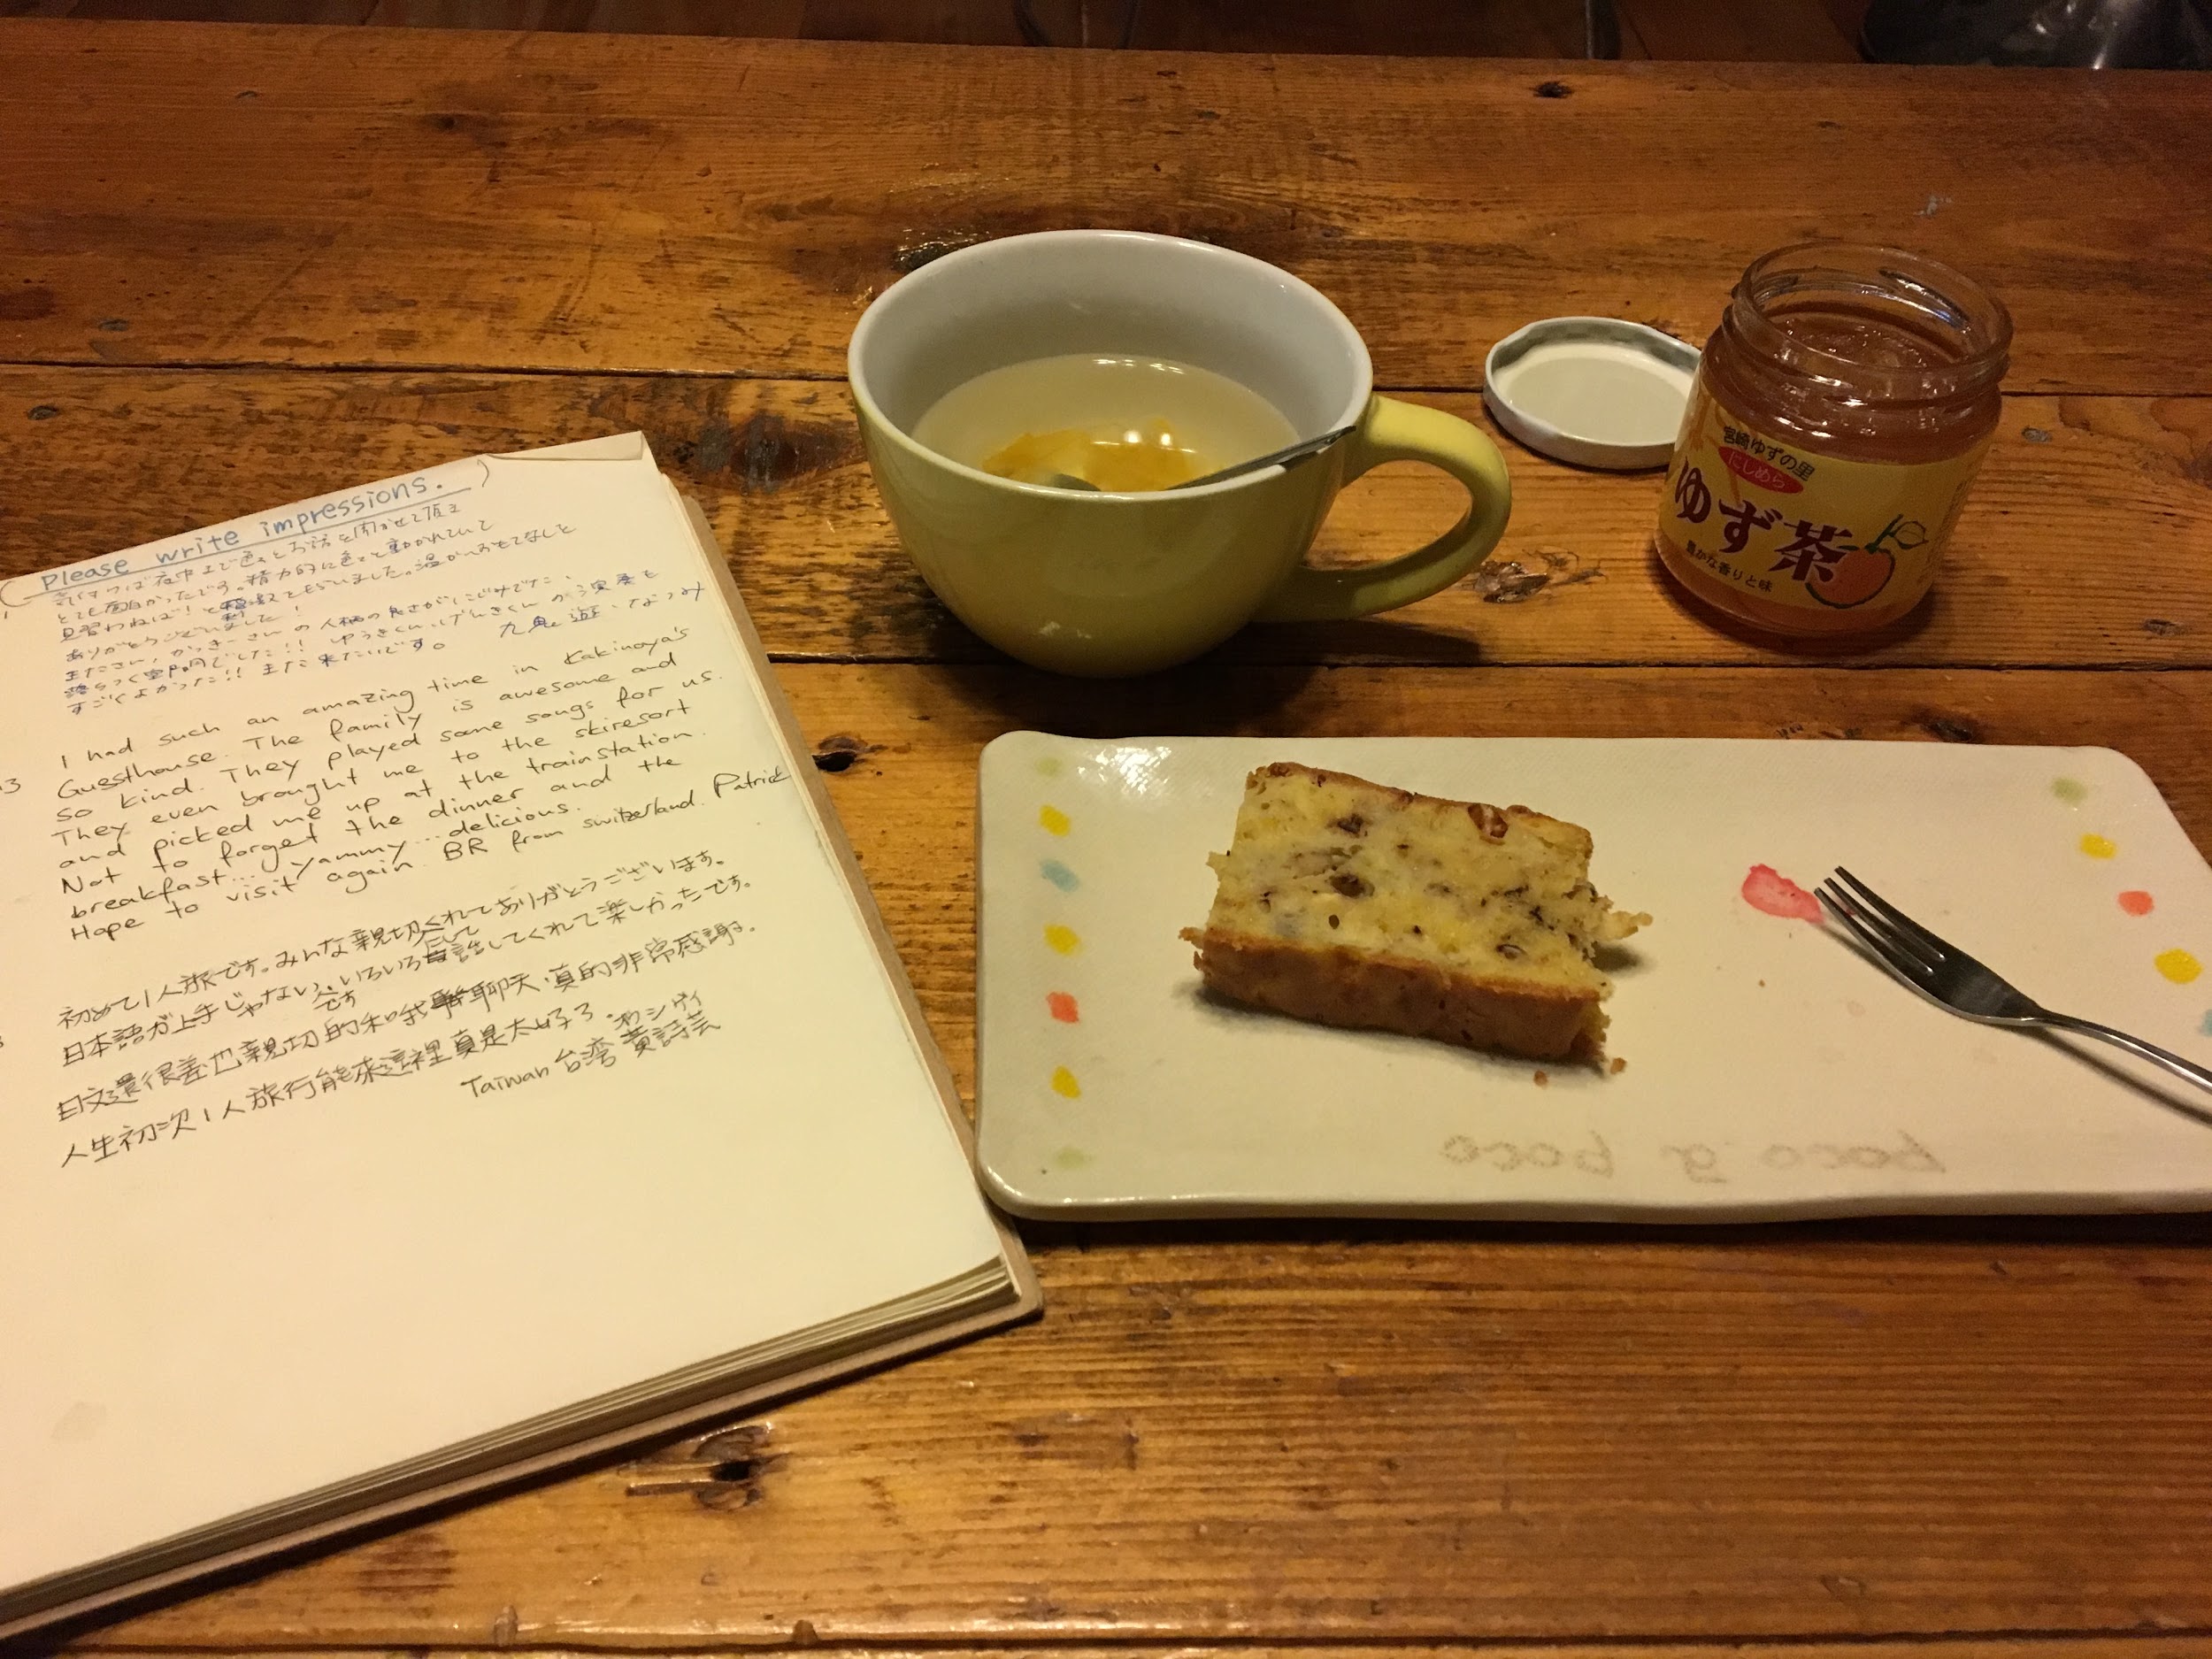 (Please write impressions.)
気がつけば夜中まで色々とお話を聞かせて頂き
とても面白かったです。精力的に色々と動かれていて
見習わねば!と刺激をもらいました。温かいおもてなしを
ありがとうございました!
またさん、かっきーさんの人柄の良さがにじみでた、
落ちつく空間でした!! ゆうきくん、げんきくんの演奏も
すごくよかった!! また来たいです。 九鬼 遊・なつみ
I had such an amazing time in Kakinoya's
Guesthouse. The family is awesome and
so kind. They played some songs for us.
They even brought me to the skiresort
and picked me up at the trainstation.
Not to forget the dinner and the
breakfast... yammy... delicious.
Hope to visit again. BR from switzerland. Patrick
初めて1人旅です。みんな親切にしてくれてありがとうございます。
日本語が上手じゃないですが、いろいろ話してくれて楽しかったです。
日文還很差也親切的和我聊天,真的非常感謝。
人生初次1人旅行能來這裡真是太好了。
Taiwan 台湾 黃詩芸
宮崎ゆずの里
にしめら
ゆず茶
豊かな香りと味
poco a poco